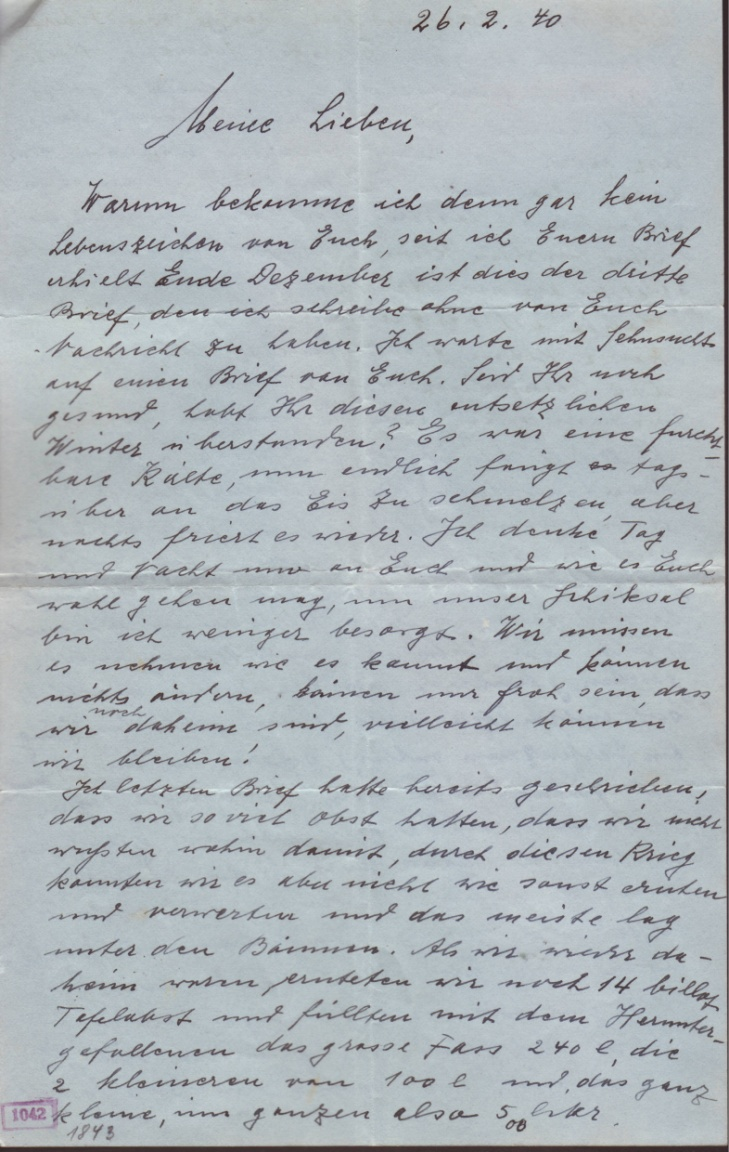 26. 2. 40
Meine Lieben,
Warum bekomme ich denn gar kein
Lebenszeichen von Euch, seit ich Euern Brief
erhielt Ende Dezember ist dies der dritte
Brief, den ich schreibe ohne von Euch
Nachricht zu haben. Ich warte mit Sehnsucht
auf einen Brief von Euch. Seid Ihr noch
gesund, habt Ihr diesen entsetzlichen
Winter überstanden? Es war eine furcht-
bare Kälte, nun endlich fängt es tags-
über an das Eis zu schmelzen, aber
nachts friert es wieder. Ich denke Tag
und Nacht nur an Euch und wie es Euch
wohl gehen mag, um unser Schiksal
bin ich weniger besorgt. Wir müssen
es nehmen wie es kommt und können
nichts ändern, können nur froh sein, dass
wir noch daheim sind, vielleicht können
wir bleiben!
Ich letzten Brief hatte bereits geschrieben,
dass wir soviel Obst hatten, dass wir nicht
wußten wohin damit, durch diesen Krieg
konnten wir es aber nicht wie sonst ernten
und verwerten und das meiste lag
unter den Bäumen. Als wir wieder da-
heim waren, ernteten wir noch 14
Tafelobst und füllten mit dem Herunter-
gefallenen das grosse Fass 240 l, die
2 kleineren von 100 l und das ganz
kleine, im ganzen also 500 Liter.
1042
1843